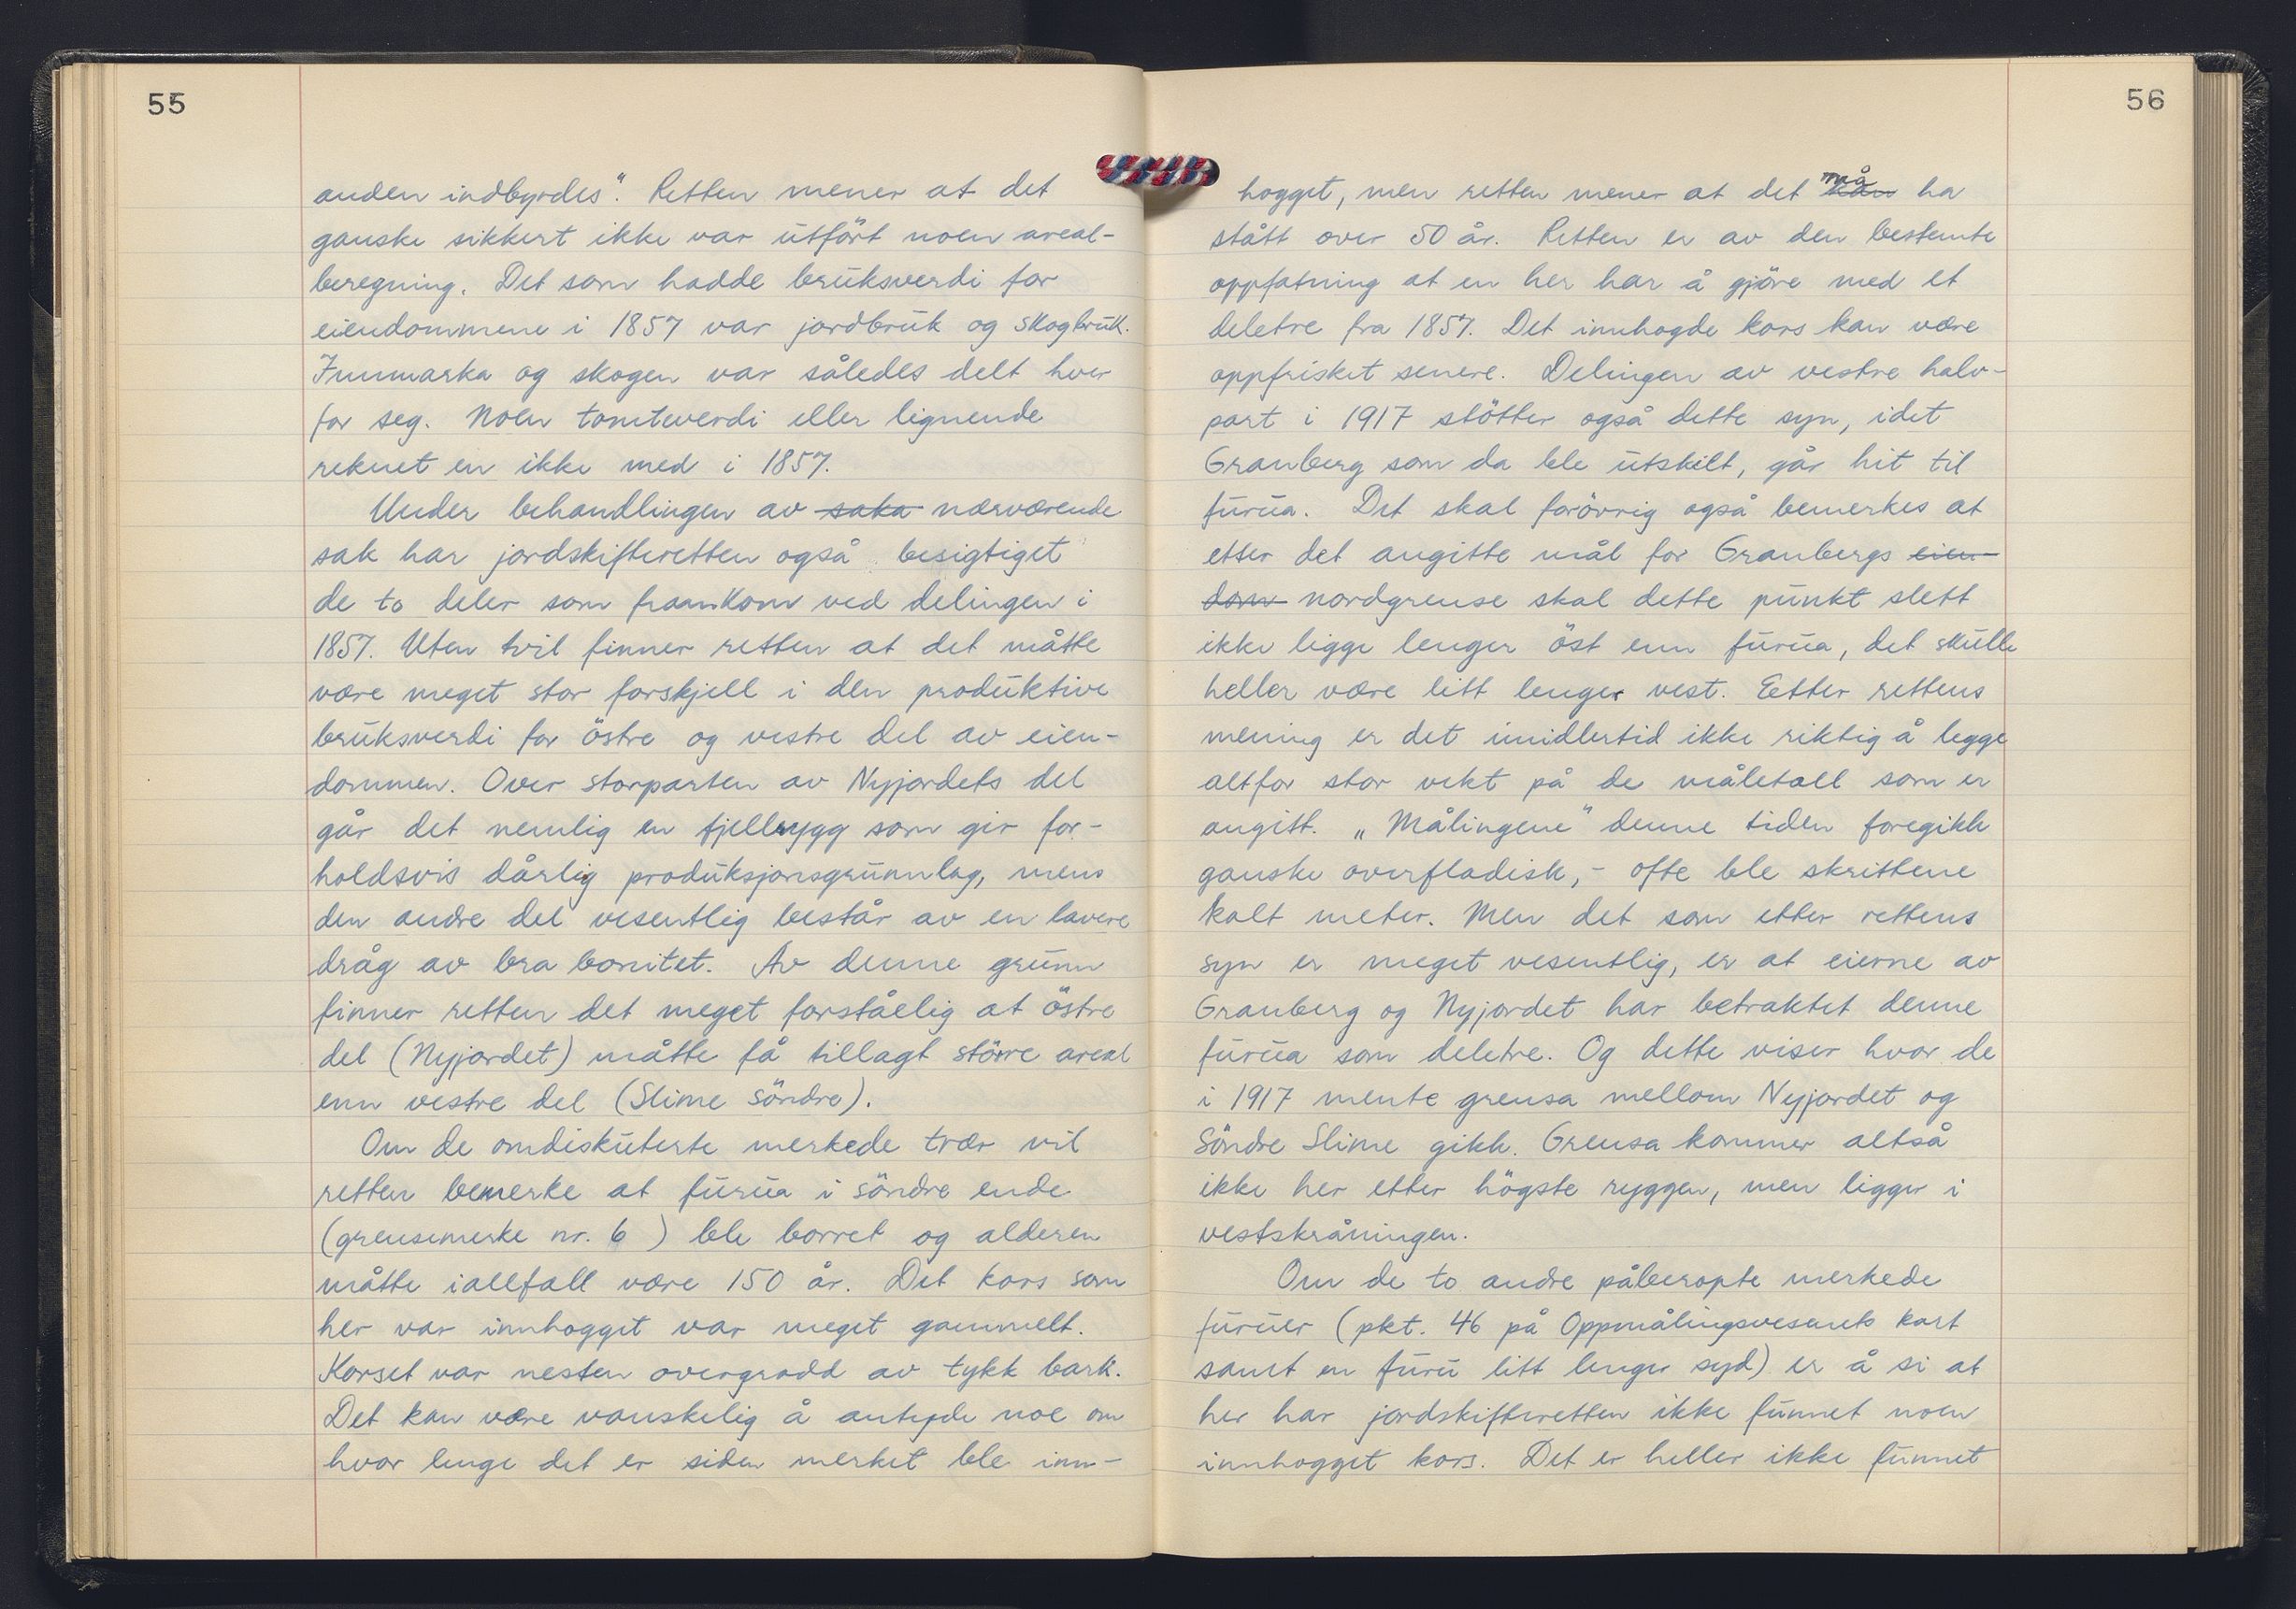 55
anden indbyrdes". Retten mener at det
ganske sikkert ikke var utfört noen areal-
beregning. Det som hadde bruksverdi for
eiendommene i 1857 var jordbruk og skogbruk.
Innmarka og skogen var således delt hver
for seg. Noen tomteverdi eller lignende
reknet en ikke med i 1857.
Under behandlingen av saka nærværende
sak har jordskifteretten også besigtiget
de to deler som framkom ved delingen i
1857. Uten tvil finner retten at det måtte
være meget stor forskjell i den produktive
bruksverdi for östre og vestre del av eien-
dommen. Over storparten av Nyjordets del
går det nemlig en fjellrygg som gir for-
holdsvis dårlig produksjonsgrunnlag, mens
den andre del vesentlig består av en lavere
dråg av bra bonitet. Av denne grunn
finner retten det meget forståelig at östre
del (Nyjordet) måtte få tillagt större areal
enn vestre del (Slime Söndre).
Om de omdiskuterte merkede trær vil
retten bemerke at furua i söndre ende
(grensemerke nr. 6) ble borret og alderen
måtte iallfall være 150 år. Det kors som
her var innhogget var meget gammelt.
Korset var nesten overgrodd av tykk bark.
Det kan være vanskelig å antyde noe om
hvor lenge det er siden merket ble inn-
56
hogget, men retten mener at det må kan ha
stått over 50 år. Retten er av den bestemte
oppfatning at en her har å gjöre med et
deletre fra 1857. Det innhogde kors kan være
oppfrisket senere. Delingen av vestre halv-
part i 1917 stötter også dette syn, idet
Granberg som da ble utskilt, går hit til
furua. Det skal forövrig også bemerkes at
etter det angitte mål for Granbergs eien-
dom nordgrense skal dette punkt slett
ikke ligge lenger öst enn furua, det skulle
heller være litt lenger vest. Etter rettens
mening er det imidlertid ikke riktig å legge
altfor stor vekt på de måletall som er
angitt. „Målingene" denne tiden foregikk
ganske overfladisk, - ofte ble skrittene
kalt meter. Men det som etter rettens
syn er meget vesentlig, er at eierne av
Granberg og Nyjordet har betraktet denne
furua som deletre. Og dette viser hvor de
i 1917 mente grensa mellom Nyjordet og
Söndre Slime gikk. Grensa kommer altså
ikke her etter högste ryggen, men ligger i
vestskråningen.
Om de to andre påberopte merkede
furuer (pkt. 46 på Oppmålingsvesenets kart
samt en furu litt lenger syd) er å si at
her har jordskifteretten ikke funnet noen
innhogget kors. Det er heller ikke funnet